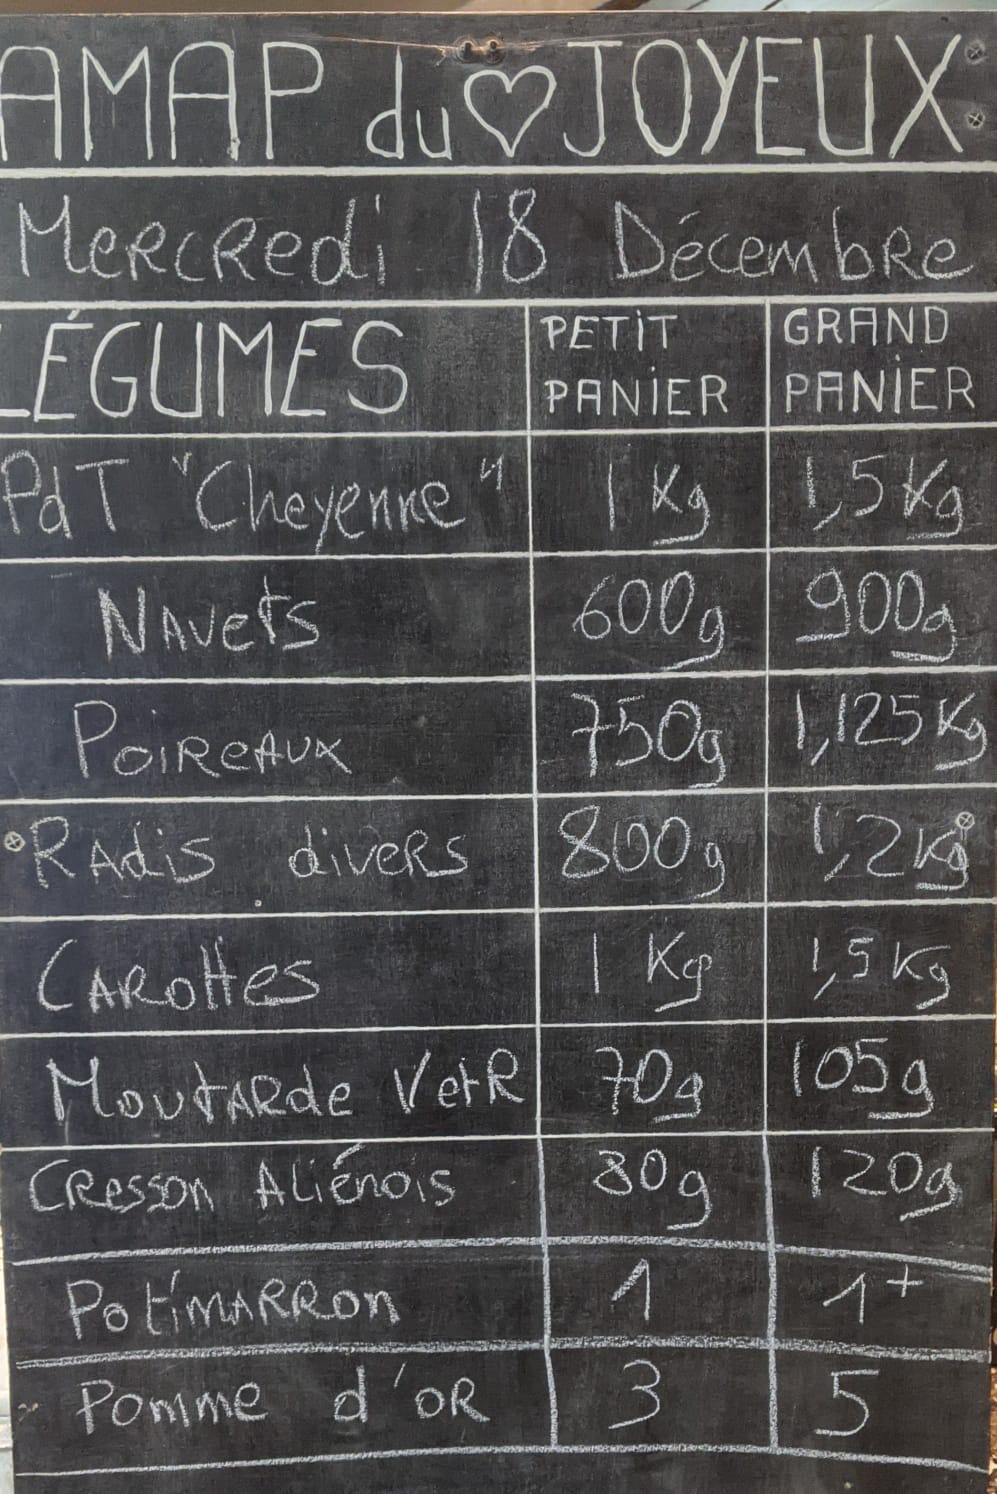 AMAP du ♡ JOYEUX
Mercredi 18 Décembre
LÉGUMES PETIT PANIER GRAND PANIER
PdT "Cheyenne" 1 Kg 1,5 Kg
Navets 600g 900g
Poireaux 750g 1,125 Kg
Radis divers 800g 1,2 Kg
Carottes 1 Kg 1,5 Kg
Moutarde Vert R 70g 105g
Cresson Aliénois 80g 120g
Potimarron 1 1+
Pomme d'or 3 5